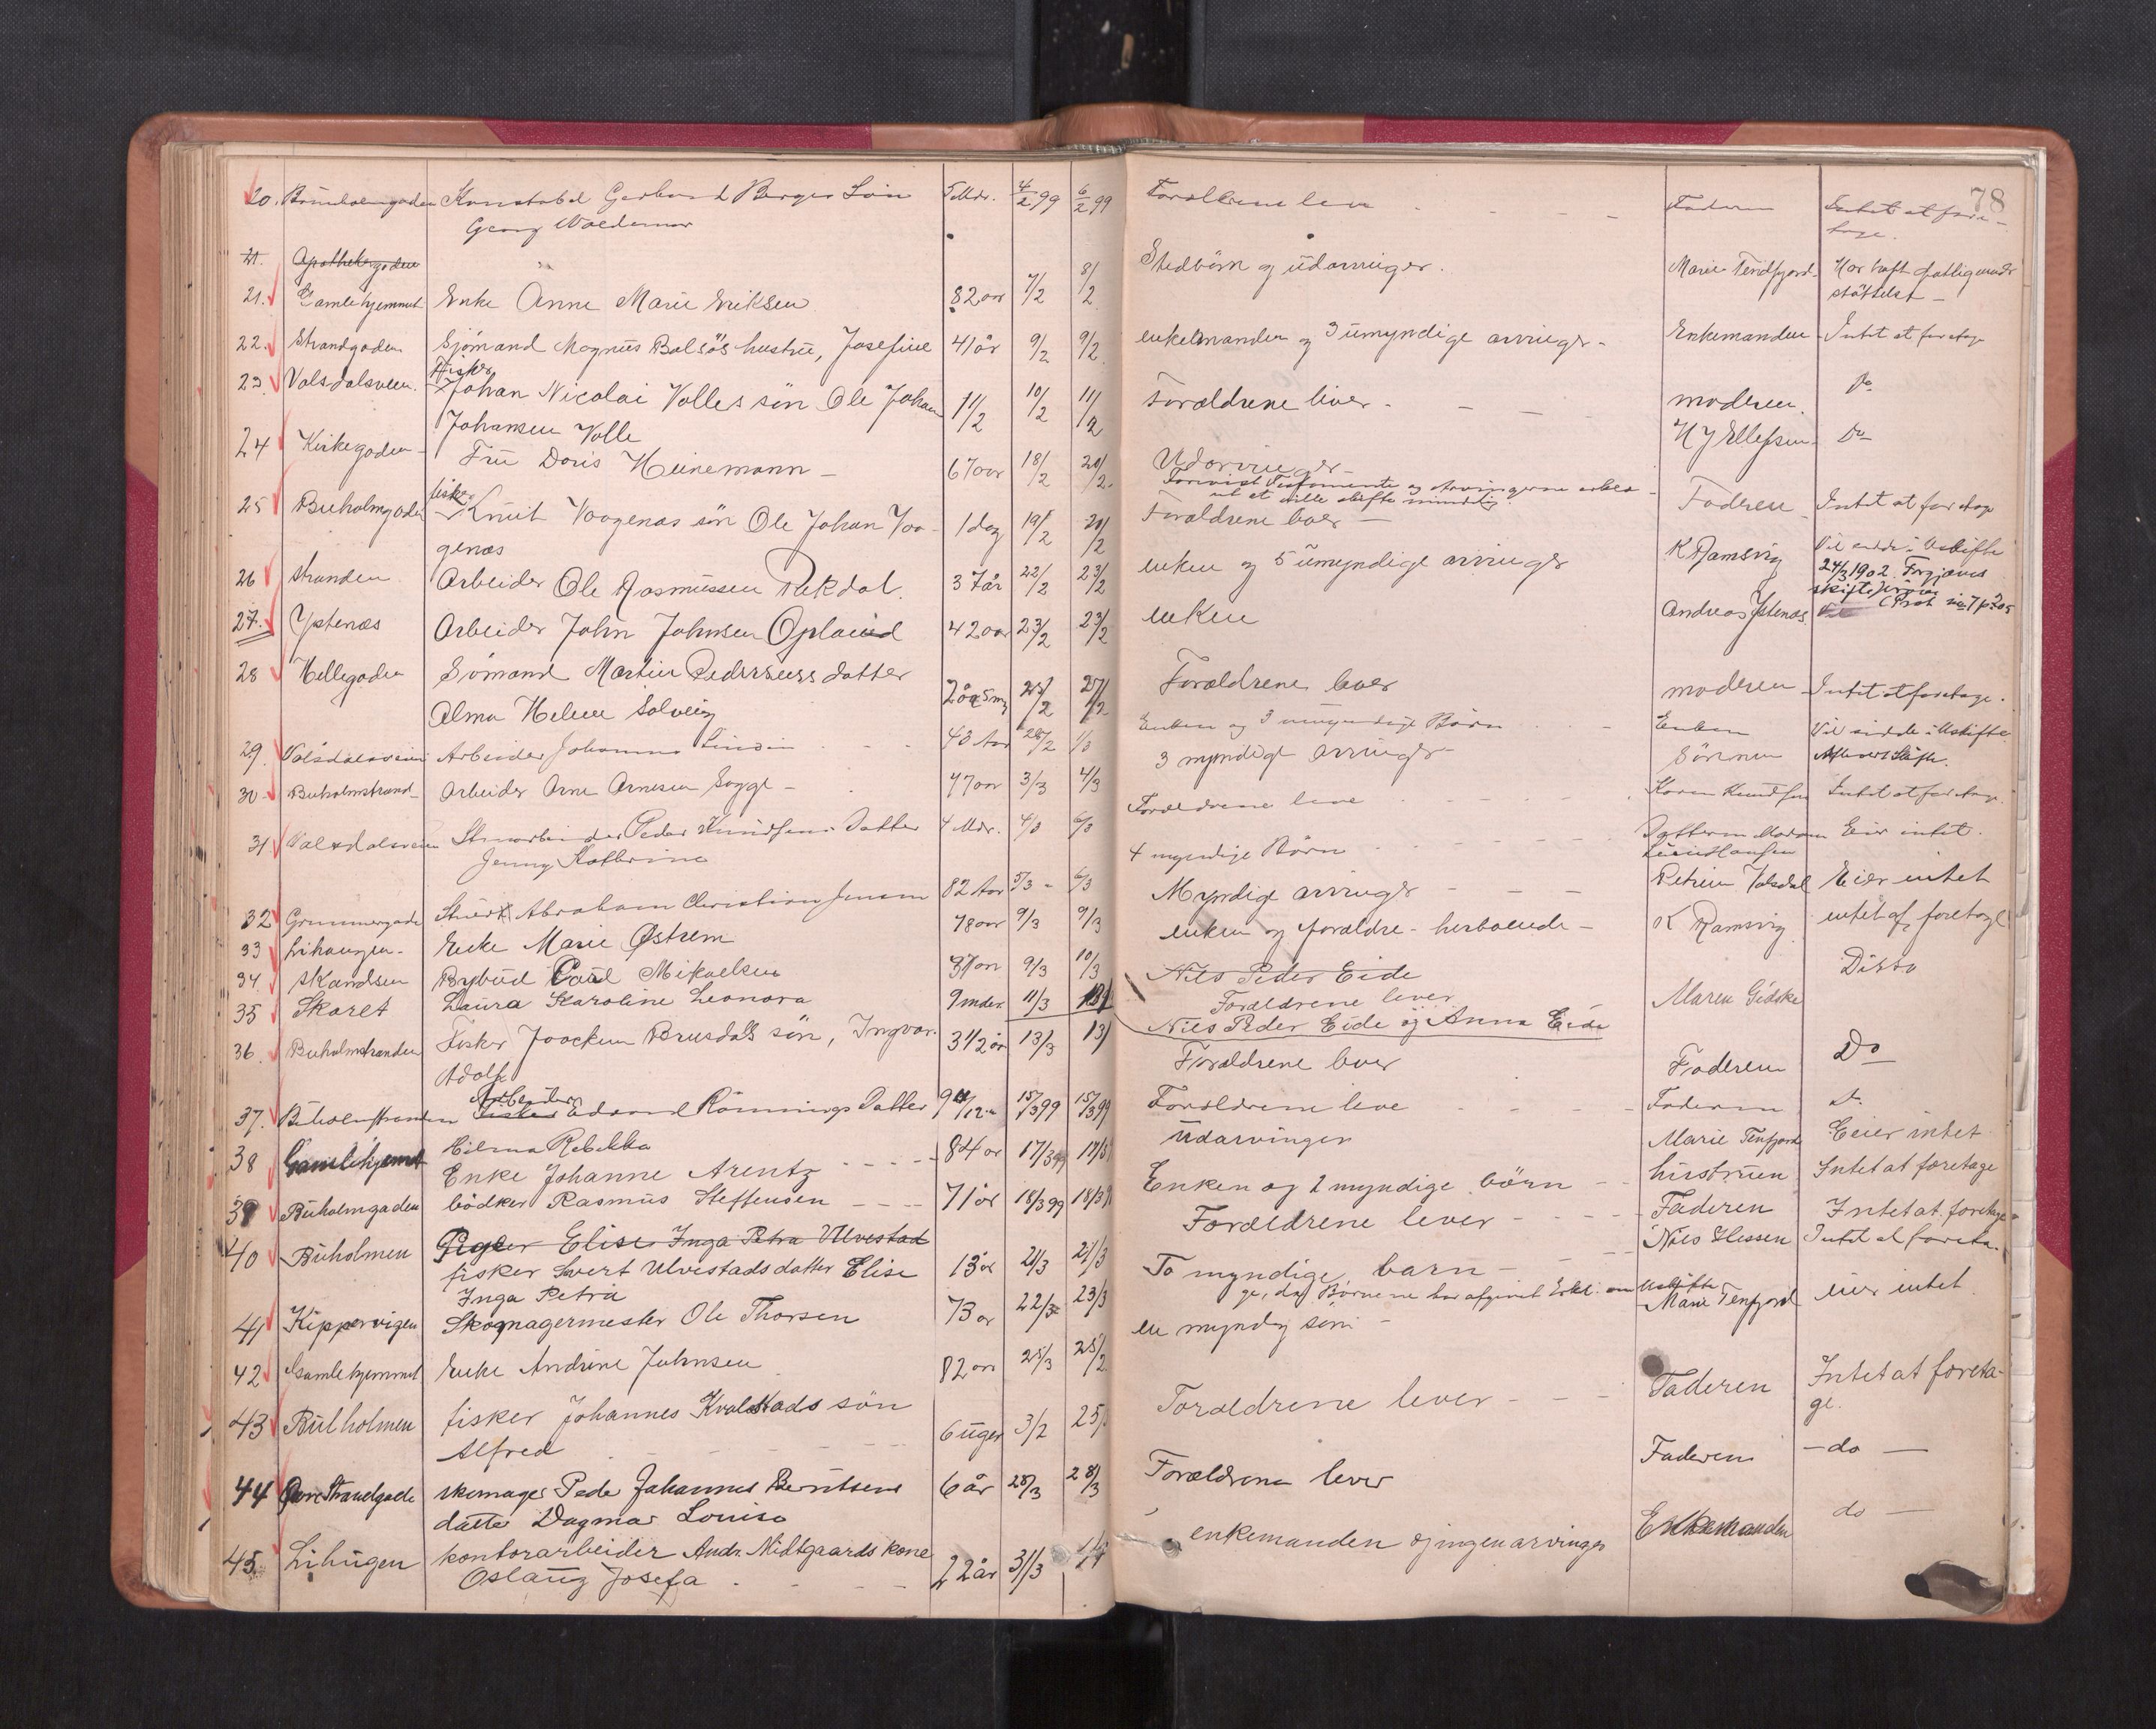 78
20. Konstabel Gerhard Berges Søn 5 Mdr. 4/2 99 6/2 99 Forældrene leve Faderen Intet at fore-
Georg Woldemar tage.
21. Apothekergaden
21. Gamlehjemmet Enke Anne Marie Eriksen 82 aar 7/2 8/2 Stedbörn og udarvinger. Marie Tenfjord Har haft fattigunder
støttelse
22. Strandgaden Sjömand Magnus Balsøs hustru, Josefine 41 år 9/2 9/2 enkemanden og 3 umyndige arvinger Enkemanden Intet at foretage
23. Volsdalsveien. Fisker
Johan Nicolai Volles sön Ole Johan 11/2 10/2 11/2 Forældrene liver moderen. Do
Johansen Volle
24 Kirkegaden Frü Doris Heinemann 67 aar 18/2 20/2 Udarvinger H J Ellefsen Do
25 Buholmgaden fisker Knut Vaagenæs sön Ole Johan Vaa- 1 dag 19/2 20/2 Forældrene lever Faderen Intet at foretage
genæs
26 Stranden Arbeider Ole Rasmussen Rekdal. 37 år 22/2 23/2 enken og 5 umyndige arvinger K Ramsvig Vil sidde i Uskifte
24/3 1902 Forgjæves
27. Ystenæs Arbeider John Johnsen Opland 42 aar 23/2 23/2 enken Andreas Ystenæs
28 Hellegaden Sömand Martin Pedersens datter 2 år 5 m 25/2 27/2 Forældrene lever moderen Intet at foretage.
Alma Helene Solveig
29. Volsdalsveien Arbeider Johannes 43 Aar 28/2 1/3 Enken og 3 umyndige Börn Enken Vil sidde i Uskifte
30 Buholmstrand Arbeider Arne Arnesen Sogge 47 aar 3/3 4/3 3 myndige arvinger Sönnen
31 Volsdalsveien Stuarbeider Peder Knudsens Datter 4 Mdr. 4/3 6/3 Forældrene leve Karen Knudsen Intet at foretage.
Jenny Kathrine
32 Grimmergaden Abraham Christian Jensen 82 Aar 5/3 6/3 4 myndige Börn Datteren Madam Eier intet.
Hansen
33 Lihaugen Enke Marie Østrem 78 aar 9/3 9/3 Myndige arvinger Petrine Volsdal Eier intet
34. Skandsen Rybud Carl Mikaelsen 37 aar 9/3 10/3 enken og forældre - herboende K Ramsvig intet at foretage
35 Skaret Laura Karoline Leonora 9 mdr. 11/3 Nils Peder Eide Maren Gidske Ditto
Forældrene lever
Nils Peder Eide og Anna Eide
36. Buholmstranden Fisker Joachim Brusdals sön, Ingvar 3 1/2 år 13/3 13/ Forældrene lever Faderen Do
Adolf
37. Buholmstranden Arbeider Fisker Edvard Rönnings Datter 15/3 99 15/3 99 Forældrene leve Faderen do
Hilma Rebekka
38 Gamlehjemmet Enke Johanne Arentz 84 or 17/3 99 17/3 udarvinger Marie Tenfjord Eeier intet
39 Buholmgaden bödker Rasmus Steffensen 71 år 18/3 99 18/3 9 Enken og 2 myndige börn hustruen Intet at foretage
40 Buholmen Pigen Elise Inga Petra Ulvestad
fisker Sivert Ulvestads datter Elise 13 år 21/3 21/3 Forældrene lever Faderen Intet at foretage
Inga Petra
41 Kippervigen Skomagermester Ole Thorsen 73 or 22/3 23/3 To myndige barn Nils Hessen Intet at foreta-
ge, da Börnene har afgivet Erkl. om Uskifte
42 Gamlehjemmet Enke Andrine Johnsen 82 aar 25/3 25/2 en myndig sön Marie Tenfjord eier intet
43 Bulholmen fisker Johannes Kvalstads sön 6 uger 3/2 25/ Forældrene lever Faderen Intet at foreta-
Alfred ge.
44 Övre Strandgade skomager Peder Johannes Berntsens 6 år 28/3 28/3 Forældrene lever Faderen do
datter Dagmar Louise
45. Lihugen kontorarbeider Andr. Midtgaards kone 22 år 31/3 1/4 enkemanden og ingen arvinger Enkemanden do
Oslaug Josefa